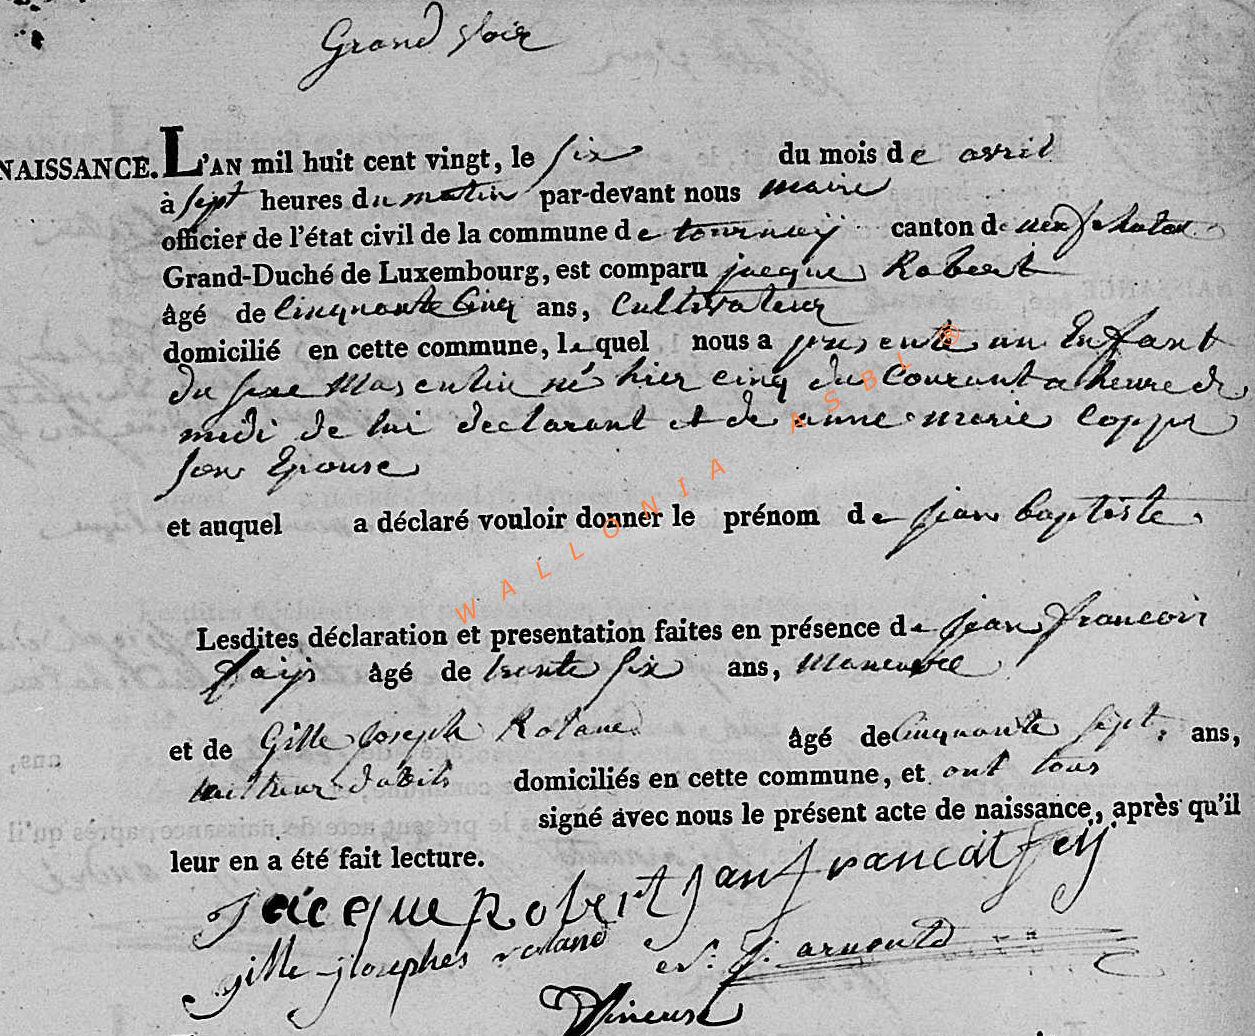 Grand Voir
NAISSANCE. L'AN mil huit cent vingt, le six du mois de avril
à sept heures du matin par-devant nous maire
officier de l'état civil de la commune de tournay canton de neufchateau
Grand-Duché de Luxembourg, est comparu jacque Robert
âgé de Cinquante Cinq ans, Cultivateur
domicilié en cette commune, lequel nous a presenté un Enfant
du sexe Masculin né hier cinq du Courant a heure de
midi de lui declarant et de anne marie
son Epouse
et auquel a déclaré vouloir donner le prénom de jean baptiste
Lesdites déclaration et presentation faites en présence de jean francois
âgé de trente six ans, Maneuvre
et de Gille Joseph Roland âgé de Cinquante sept ans,
domiciliés en cette commune, et ont tous
signé avec nous le présent acte de naissance, après qu'il
leur en a été fait lecture.
Jacque Robert
gille josephes roland
arnould
WALLONIA ASBL ®